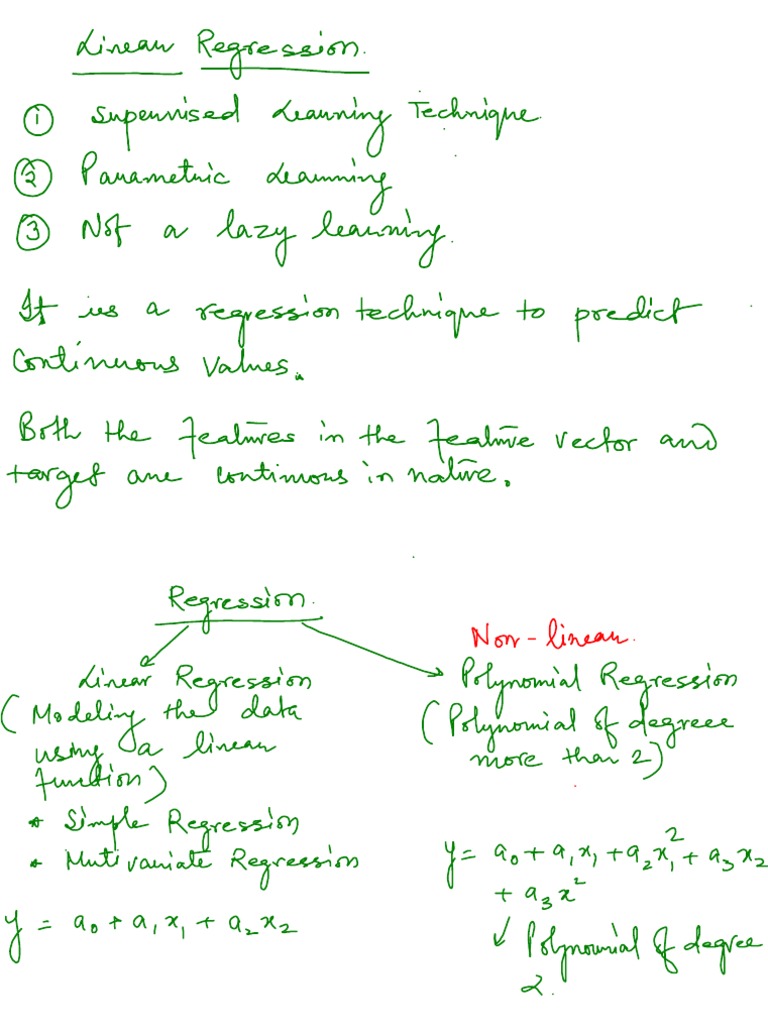 Linear Regression.
① Supervised Learning Technique.
② Parametric Learning
③ Not a lazy learning.
It is a regression technique to predict
Continuous Values.
Both the features in the feature vector and
target are continuous in nature.
Regression.
Non-linear.
Linear Regression
(Modeling the data
using a linear
function)
* Simple Regression
* Multivariate Regression
y = a₀ + a₁x₁ + a₂x₂
Polynomial Regression
(Polynomial of degree
more than 2)
y = a₀ + a₁x₁ + a₂x₁² + a₃x₂
+ a₃x²
✓ Polynomial of degree
2.